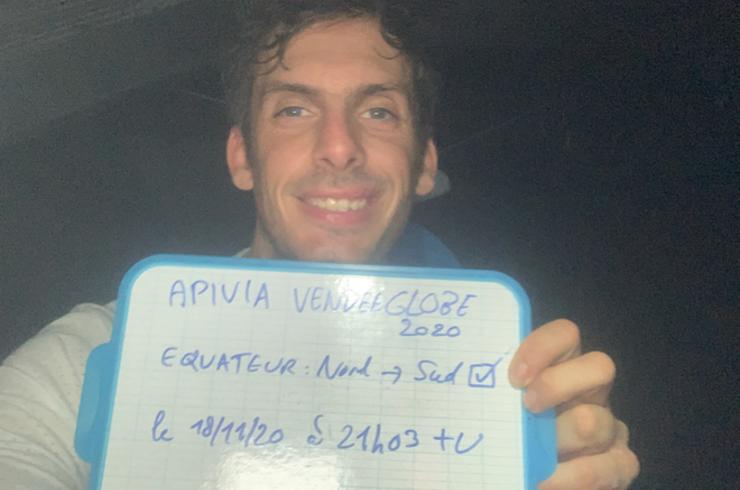 APIVIA VENDEEGLOBE
2020
EQUATEUR : Nord → Sud ☑
le 18/11/20 à 21h03 TU